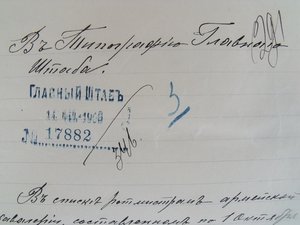 Въ Типографію Главнаго
Штаба.
ГЛАВНЫЙ ШТАБЪ
№ 17882
Въ спискѣ ротмистрамъ армейской
кавалеріи, составленномъ по 1 Октября